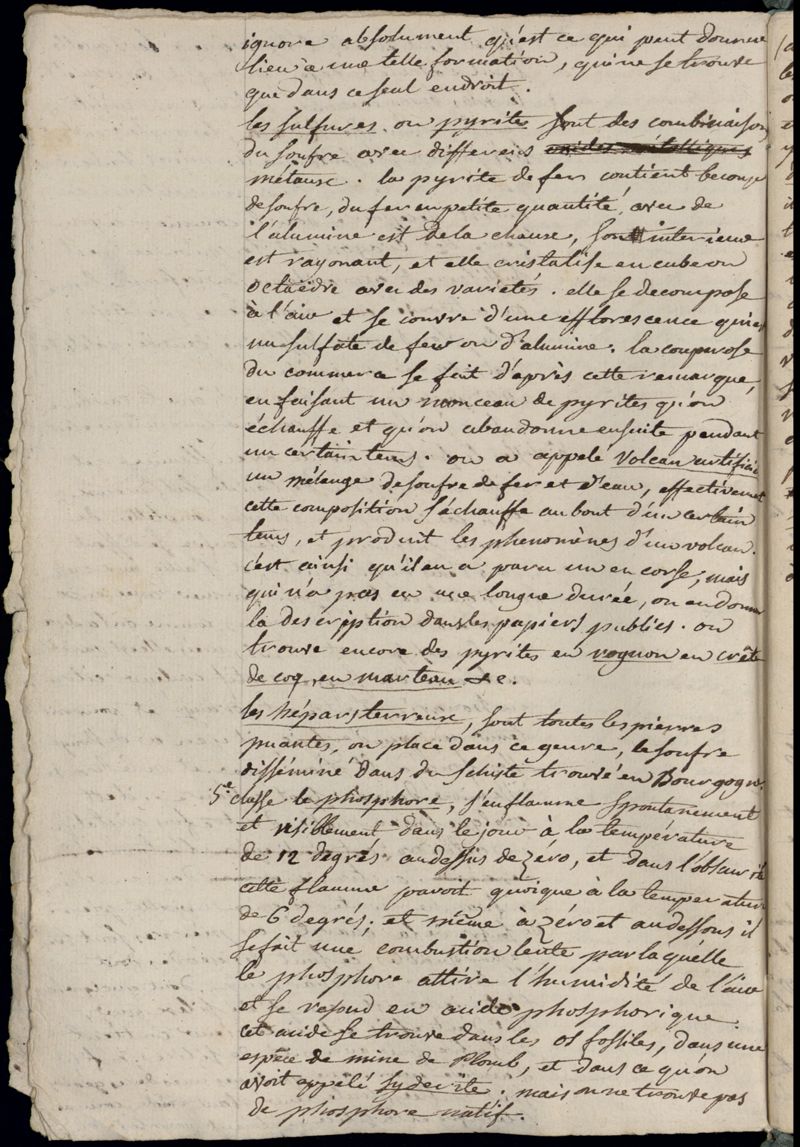 ignore absolument qu'est ce qui peut donner
lieu a une telle formation, qui ne se trouve
que dans ce seul endroit.
les sulfures ou pyrites sont des combinaisons
du soufre avec differens oxides métalliques
métaux. la pyrite de fer contient becoup
de soufre, du fer en petite quantité, avec de
l'alumine est de la chaux, son interieur
est rayonant, et elle cristalise en cube ou
octaëdre avec des varietés. elle se decompose
à l'air et se couvre d'une efflorescence qui est
un sulfate de fer ou d'alumine. la couperose
du commerce se fait d'après cette remarque,
en faisant un monceau de pyrites qu'on
échauffe et qu'on abandonne ensuite pendant
un certain tems. on a appelé Volcan artificiel
un mélange de soufre de fer et d'eau, effectivement
cette composition s'échauffe au bout d'un certain
tems, et produit les phenomènes d'un volcan.
c'est ainsi qu'il en a paru un en corse, mais
qui n'a pas eu une longue durée, on en donna
la description dans les papiers publics. on
trouve encore des pyrites en rognon en crête
de coq, en marteau &c.
les hépars terreux, sont toutes les pierres
puantes, on place dans ce genre, le soufre
disséminé dans du schiste trouvé en Bourgogne.
5e classe le phosphore, s'enflamme spontanement
et visiblement dans le jour à la température
de 12 degrés au dessus de zéro, et dans l'obscurité
cette flamme paroit quoique à la temperature
de 6 degrés; et même à zéro et au dessous il
se fait une combustion lente par laquelle
le phosphore attire l'humidité de l'air
et se resoud en acide phosphorique.
cet acide se trouve dans les os fossiles, dans une
espèce de mine de Plomb, et dans ce qu'on
avoit appelé syderite. mais on ne trouve pas
de phosphore natif.